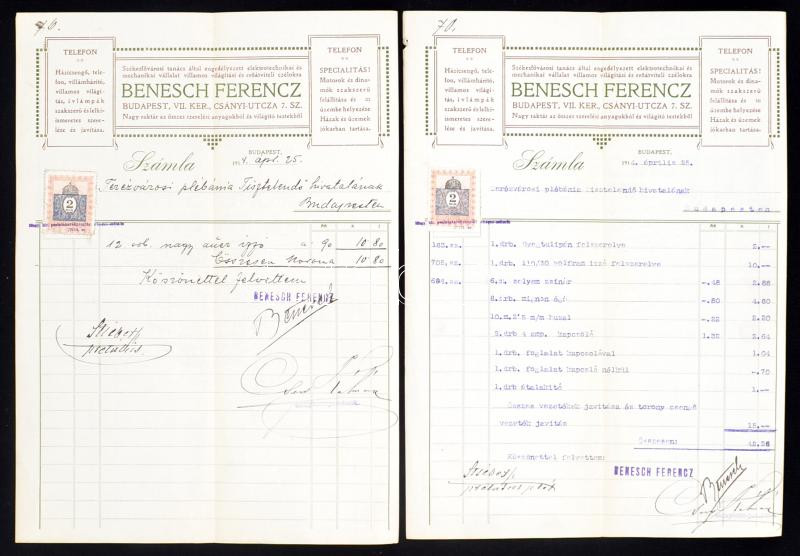 76.
TELEFON
Házicsengő, tele-
fon, villámhárító,
villamos világi-
tás, ívlámpák
szakszerű és lelki-
ismeretes szere-
lése és javítása.
Székesfővárosi tanács által engedélyezett elektrotechnikai és
mechanikai vállalat villamos világítási és erőátviteli czélokra
BENESCH FERENCZ
BUDAPEST, VII. KER., CSÁNYI-UTCZA 7. SZ.
Nagy raktár az összes szerelési anyagokból és világító testekből
TELEFON
SPECIALITÁS!
Motorok és dina-
mók szakszerű
felállítása és
üzembe helyezése
Házak és üzemek
jókarban tartása.
Számla
BUDAPEST,
1914. ápr. 25.
2
Terézvárosi plébánia Tisztelendő hivatalának
Budapesten
12 drb nagy izzó a 90 10 80
Összesen Korona 10 80
Köszönettel felvettem
BENESCH FERENCZ
Benesch
70.
TELEFON
Házicsengő, tele-
fon, villámhárító,
villamos világi-
tás, ívlámpák
szakszerű és lelki-
ismeretes szere-
lése és javítása.
Székesfővárosi tanács által engedélyezett elektrotechnikai és
mechanikai vállalat villamos világítási és erőátviteli czélokra
BENESCH FERENCZ
BUDAPEST, VII. KER., CSÁNYI-UTCZA 7. SZ.
Nagy raktár az összes szerelési anyagokból és világító testekből
TELEFON
SPECIALITÁS!
Motorok és dina-
mók szakszerű
felállítása és
üzembe helyezése
Házak és üzemek
jókarban tartása.
Számla
BUDAPEST,
1914. április 25.
2
Terézvárosi plébánia tisztelendő hivatalának
Budapesten
1.drb. tulipán felszerelve 2.—
1.drb. wolfram izzó felszerelve 10.—
6.m. selyem zsinór —.48 2.88
—.80 4.80
10.m. m/m huzal —.22 2.20
2.drb 4 amp. kapcsoló 1.32 2.64
1.drb. foglalat kapcsolóval 1.04
1.drb. foglalat kapcsoló nélkül —.70
1.drb átalakitó 1.—
Összes vezetékek javitása és torony csengő
vezeték javitás 15.—
Összesen: 42.26
Köszönettel felvettem:
BENESCH FERENCZ
Benesch